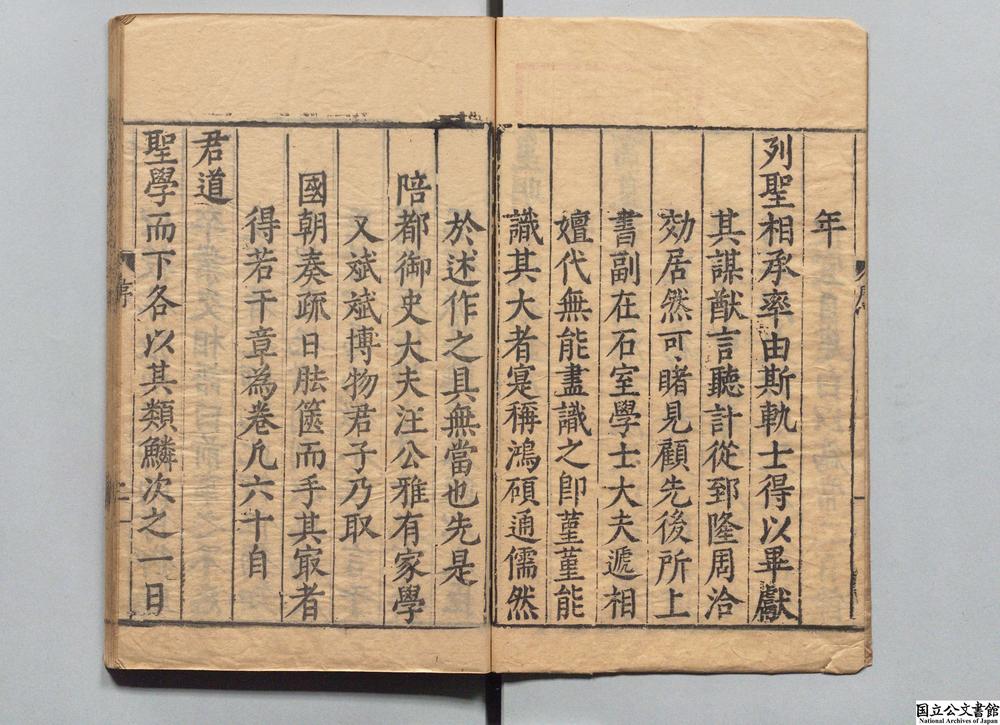 年
列聖相承率由斯軌士得以畢獻
其謀猷言聽計從郅隆周洽
効居然可睹見顧先後所上
書副在石室學士大夫遞相
嬗代無能盡識之卽菫菫能
識其大者寔稱鴻碩通儒然
於述作之具無當也先是
陪都御史大夫汪公雅有家學
又斌斌博物君子乃取
國朝奏疏日胠篋而手其㝡者
得若干章為卷凡六十自
君道
聖學而下各以其類鱗次之一日
序
国立公文書館
National Archives of Japan